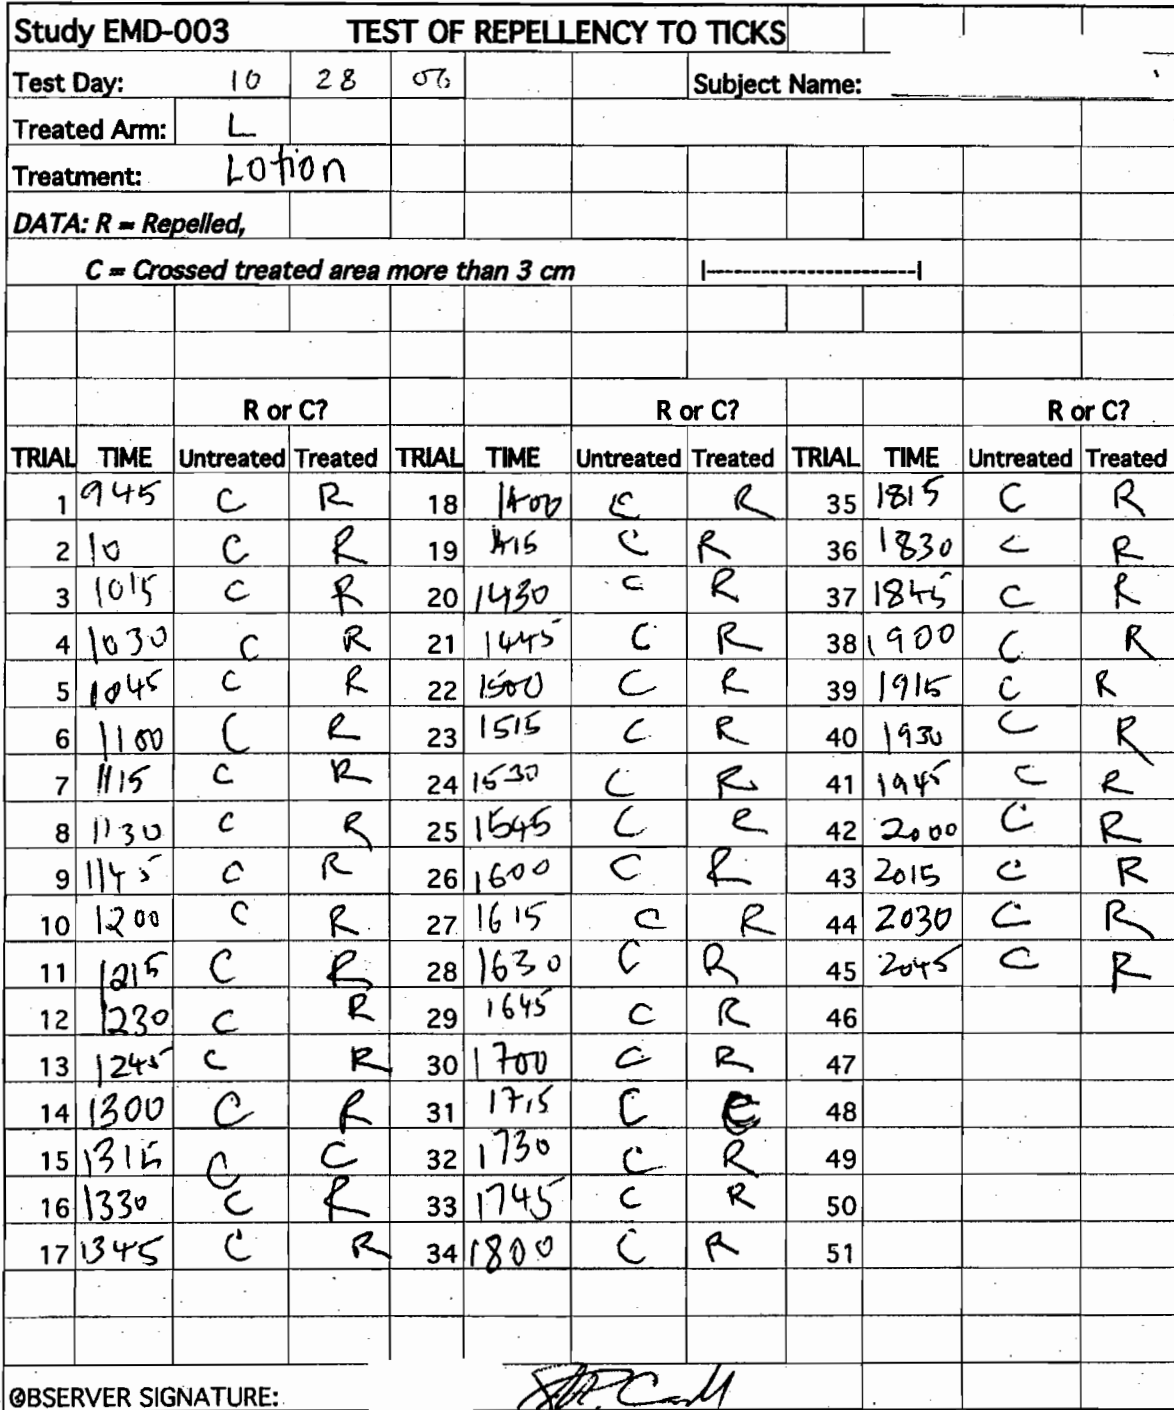 Study EMD-003 TEST OF REPELLENCY TO TICKS
Test Day: 10 28 06 Subject Name:
Treated Arm: L
Treatment: Lotion
DATA: R = Repelled,
C = Crossed treated area more than 3 cm |------------------------|
R or C? R or C? R or C?
TRIAL TIME Untreated Treated TRIAL TIME Untreated Treated TRIAL TIME Untreated Treated
1 945 C R 18 1400 C R 35 1815 C R
2 10 C R 19 1415 C R 36 1830 C R
3 1015 C R 20 1430 C R 37 1845 C R
4 1030 C R 21 1445 C R 38 1900 C R
5 1045 C R 22 1500 C R 39 1915 C R
6 1100 C R 23 1515 C R 40 1930 C R
7 1115 C R 24 1530 C R 41 1945 C R
8 1130 C R 25 1545 C R 42 2000 C R
9 1145 C R 26 1600 C R 43 2015 C R
10 1200 C R 27 1615 C R 44 2030 C R
11 1215 C R 28 1630 C R 45 2045 C R
12 1230 C R 29 1645 C R 46
13 1245 C R 30 1700 C R 47
14 1300 C R 31 1715 C C 48
15 1315 C C 32 1730 C R 49
16 1330 C R 33 1745 C R 50
17 1345 C R 34 1800 C R 51
OBSERVER SIGNATURE: